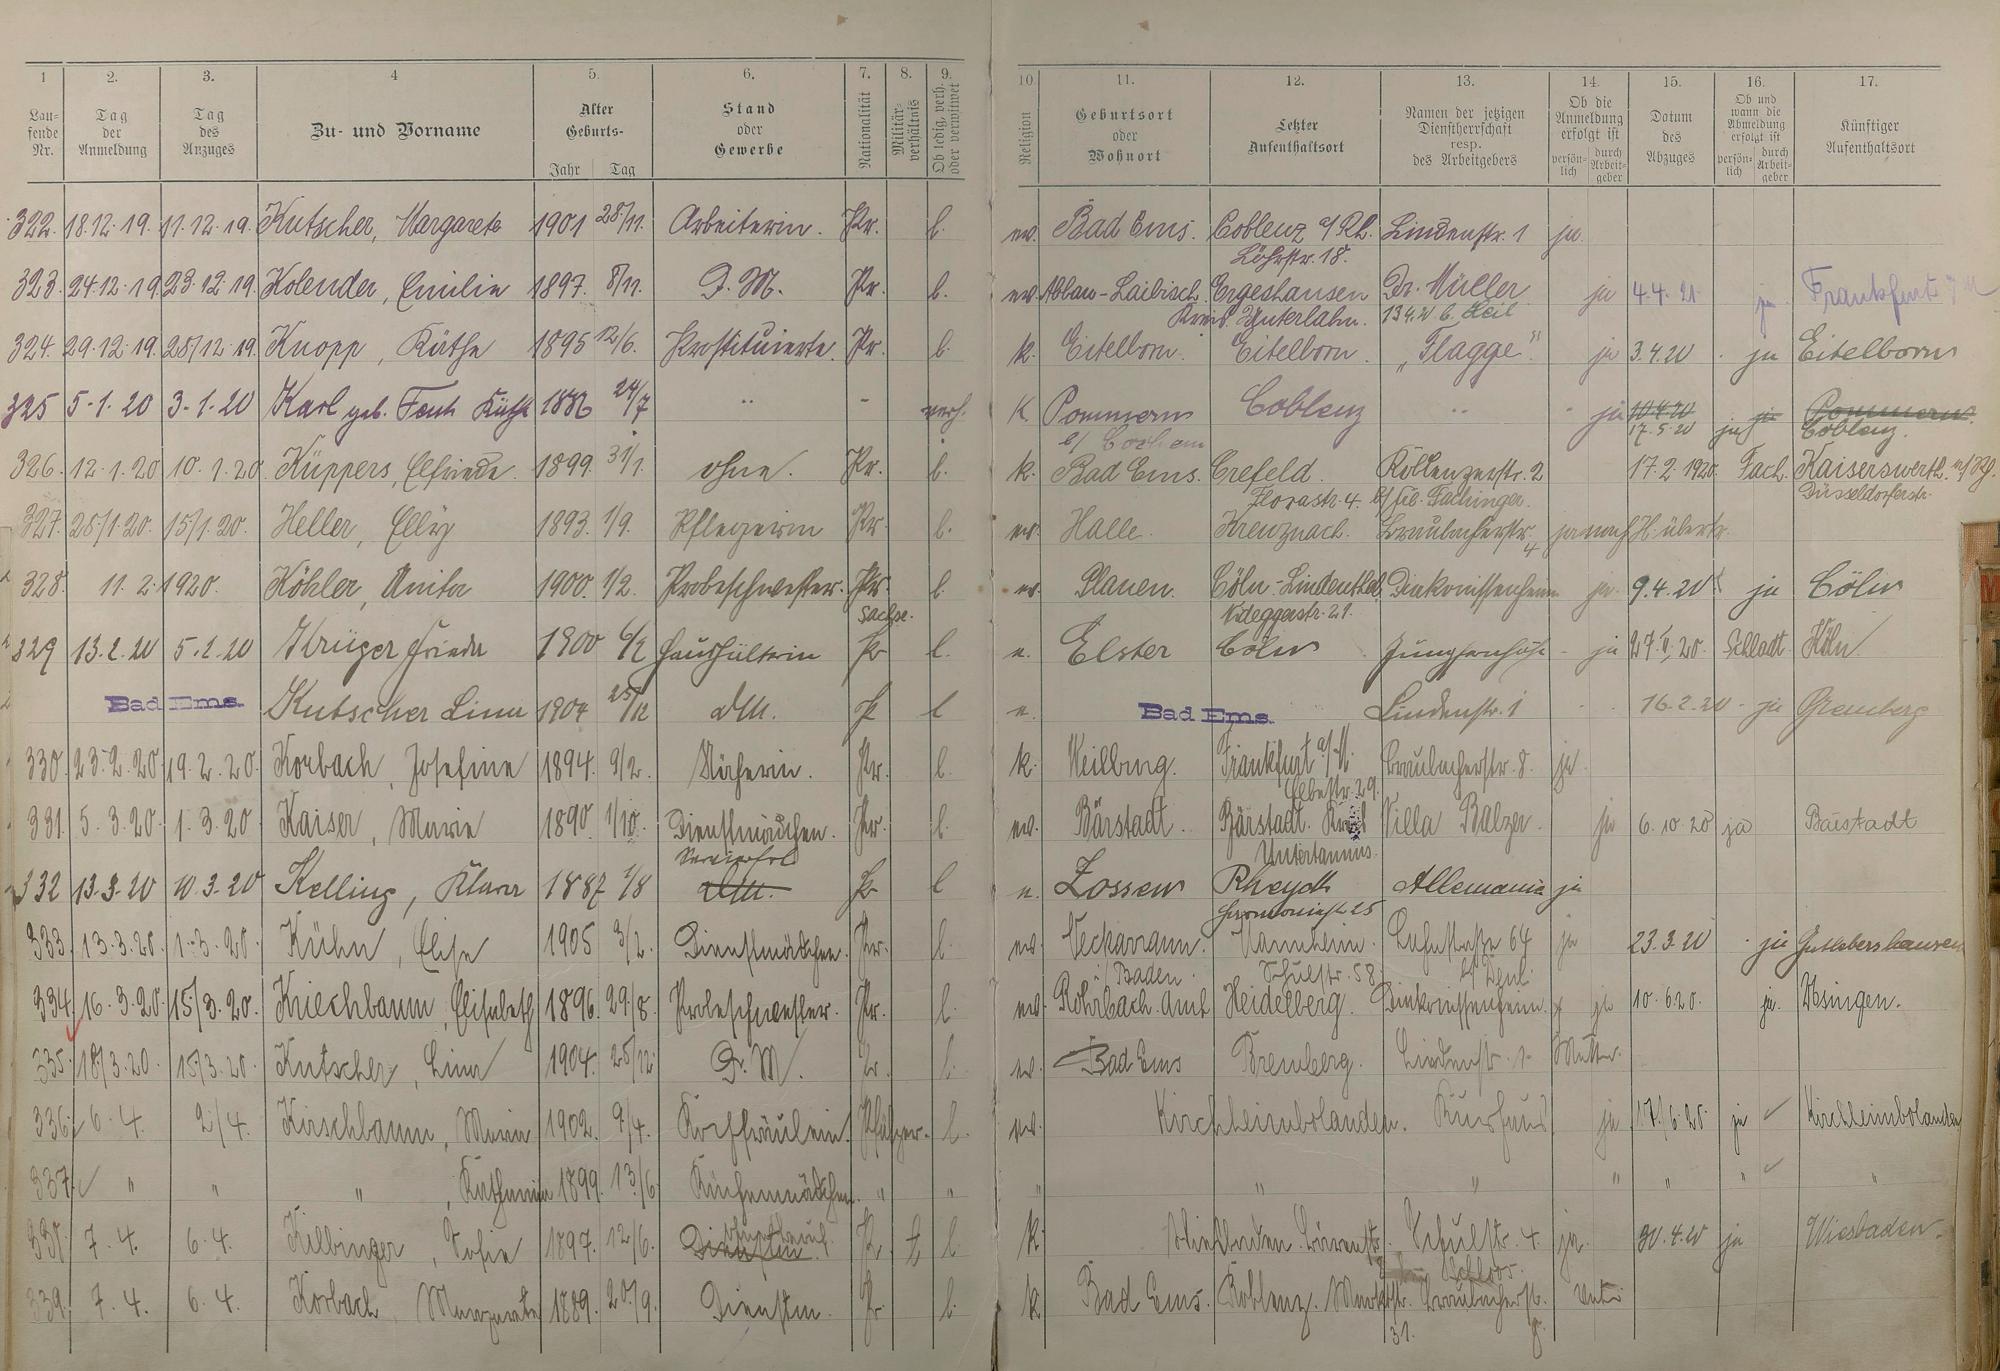 1 2. 3. 4 5. 6. 7. 8. 9. 10. 11. 12. 13. 14. 15. 16. 17.
Lau-
fende
Nr.
Tag
der
Anmeldung
Tag
des
Anzuges
Zu- und Vorname
Alter
Geburts-
Jahr Tag
Stand
oder
Gewerbe
Nationalität
Militär-
verhältnis
Ob ledig, verh.
oder verwitwet
Religion
Geburtsort
oder
Wohnort
Letzter
Aufenthaltsort
Namen der jetzigen
Dienstherrschaft
resp.
des Arbeitgebers
Ob die
Anmeldung
erfolgt ist
persön-
lich
durch
Arbeit-
geber
Datum
des
Abzuges
Ob und
wann die
Abmeldung
erfolgt ist
persön-
lich
durch
Arbeit-
geber
Künftiger
Aufenthaltsort
322. 18.12.19. 11.12.19. Kutscher, Margarete 1901 28/11. Arbeiterin. Pr. l. ev. Bad Ems. Coblenz a/Rh. Lindenstr. 1 ja
Löhrstr. 18.
323. 24.12.19. 23.12.19. Kolender, Emilie 1897. 8/11. D. M. Pr. l. ev. Ergeshausen Dr. Müller ja 4.4.21 ja Frankfurt a/M
Kreis Unterlahn. 13.4.20 b. Heil
324. 29.12.19. 28/12.19. Knopp, Käthe 1895 12/6. Prostituierte. Pr. l. k. Eitelborn. Eitelborn. „Flagge“ ja 3.4.20 ja Eitelborn
325 5.1.20 3.1.20 Karl geb. Käthe 1886 24/7 " - verh. K Pommern Coblenz " ja 10.4.20 ja Pommern
17.5.20 ja Coblenz.
326. 12.1.20 10.1.20 Küppers, Elfriede. 1899. 31/1. ohne. Pr. l. k. Bad Ems. Crefeld. Koblenzerstr. 2 17.2.1920. Fach. Kaiserswerth a/Rh.
Florastr. 4. Fachinger. Düsseldorferstr.
327. 28/1.20. 15/1.20. Heller, Elly 1893. 1/9. Pflegerin Pr. l. ev. Halle. Kreuznach. Braubacherstr. ja nach H. übertr.
4
328. 11.2.1920. Köhler, Anita 1900. 1/2. Probeschwester. Pr. l. ev. Plauen. Cöln-Lindenthal, Diakonissenheim ja 9.4.20 ja Cöln
Sachse. Nideggerstr. 21.
329 13.2.20 5.2.20 Krüger Frieda 1900 6/2 Haushälterin Pr l. e. Elster Cöln Jungfernhöhe - ja 27.4.20. Schladt Köln
Bad Ems. Kutscher Lina 1904 25/12 dM. Pr l e. Bad Ems. Lindenstr. 1 16.2.20 - ja Bremberg
330. 23.2.20. 19.2.20. Korbach, Josefine 1894. 9/2. Näherin. Pr. l. k. Weilburg. Frankfurt a/M. Braubacherstr. 8. ja
Elbestr. 29.
331. 5.3.20. 1.3.20. Kaiser, Marie 1890. 1/10. Dienstmädchen. Pr. l. ev. Bärstadt. Bärstadt. Kreis Villa Balzer. ja 6.10.20 ja Bärstadt
Untertaunus.
332 13.3.20 10.3.20 Kelling, Klara 1887 1/8 dM. Pr l e. Zossen Rheydt Allemania ja
Harmoniestr 25
333. 13.3.20. 1.3.20. Kühn, Elise 1905 3/2. Dienstmädchen. Pr. l. ev. Neckarrann. Mannheim. Lahnstraße 64 ja 23.3.20 - ja
i/Baden. Schulstr. 58.
334. 16.3.20. 15/3.20. Kriechbaum, Elisabeth 1896. 29/8. Probeschwester. Pr. l. ev. Rohrbach. Amt Heidelberg. Diakonissenheim. ja 10.6.20. ja. Usingen.
335. 18/3.20. 15/3.20. Kutscher, Lina 1904. 25/12. D. M. Pr. l. ev. Bad Ems Bremberg. Lindenstr. 1. Mutter.
336. 6.4. 2/4. Kirschbaum, Maria 1902. 9/4. Kochfräulein. Pfälzer. l. ev. Kirchheimbolanden. Kurhaus ja 17/6.20. ja ✓ Kirchheimbolanden
337. ✓ " " " , Katharina 1899. 13/6. Küchenmädchen. " " " " " " " " ✓ "
338. 7.4. 6.4. Kilbinger, Sofie 1897. 12/6. Dienstm. Pr. l. k. Wiesbaden. Schulstr. 4 ja. 30.4.20 ja Wiesbaden.
339. 7.4. 6.4. Korbach, Margarete 1889. 20/9. Dienstm. Pr. l. k Bad Ems. Koblenz. Braubacherstr.
31. 8.